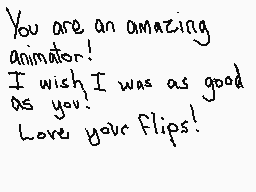 You are an amazing
animator!
I wish I was as good
as you!
Love your flips!